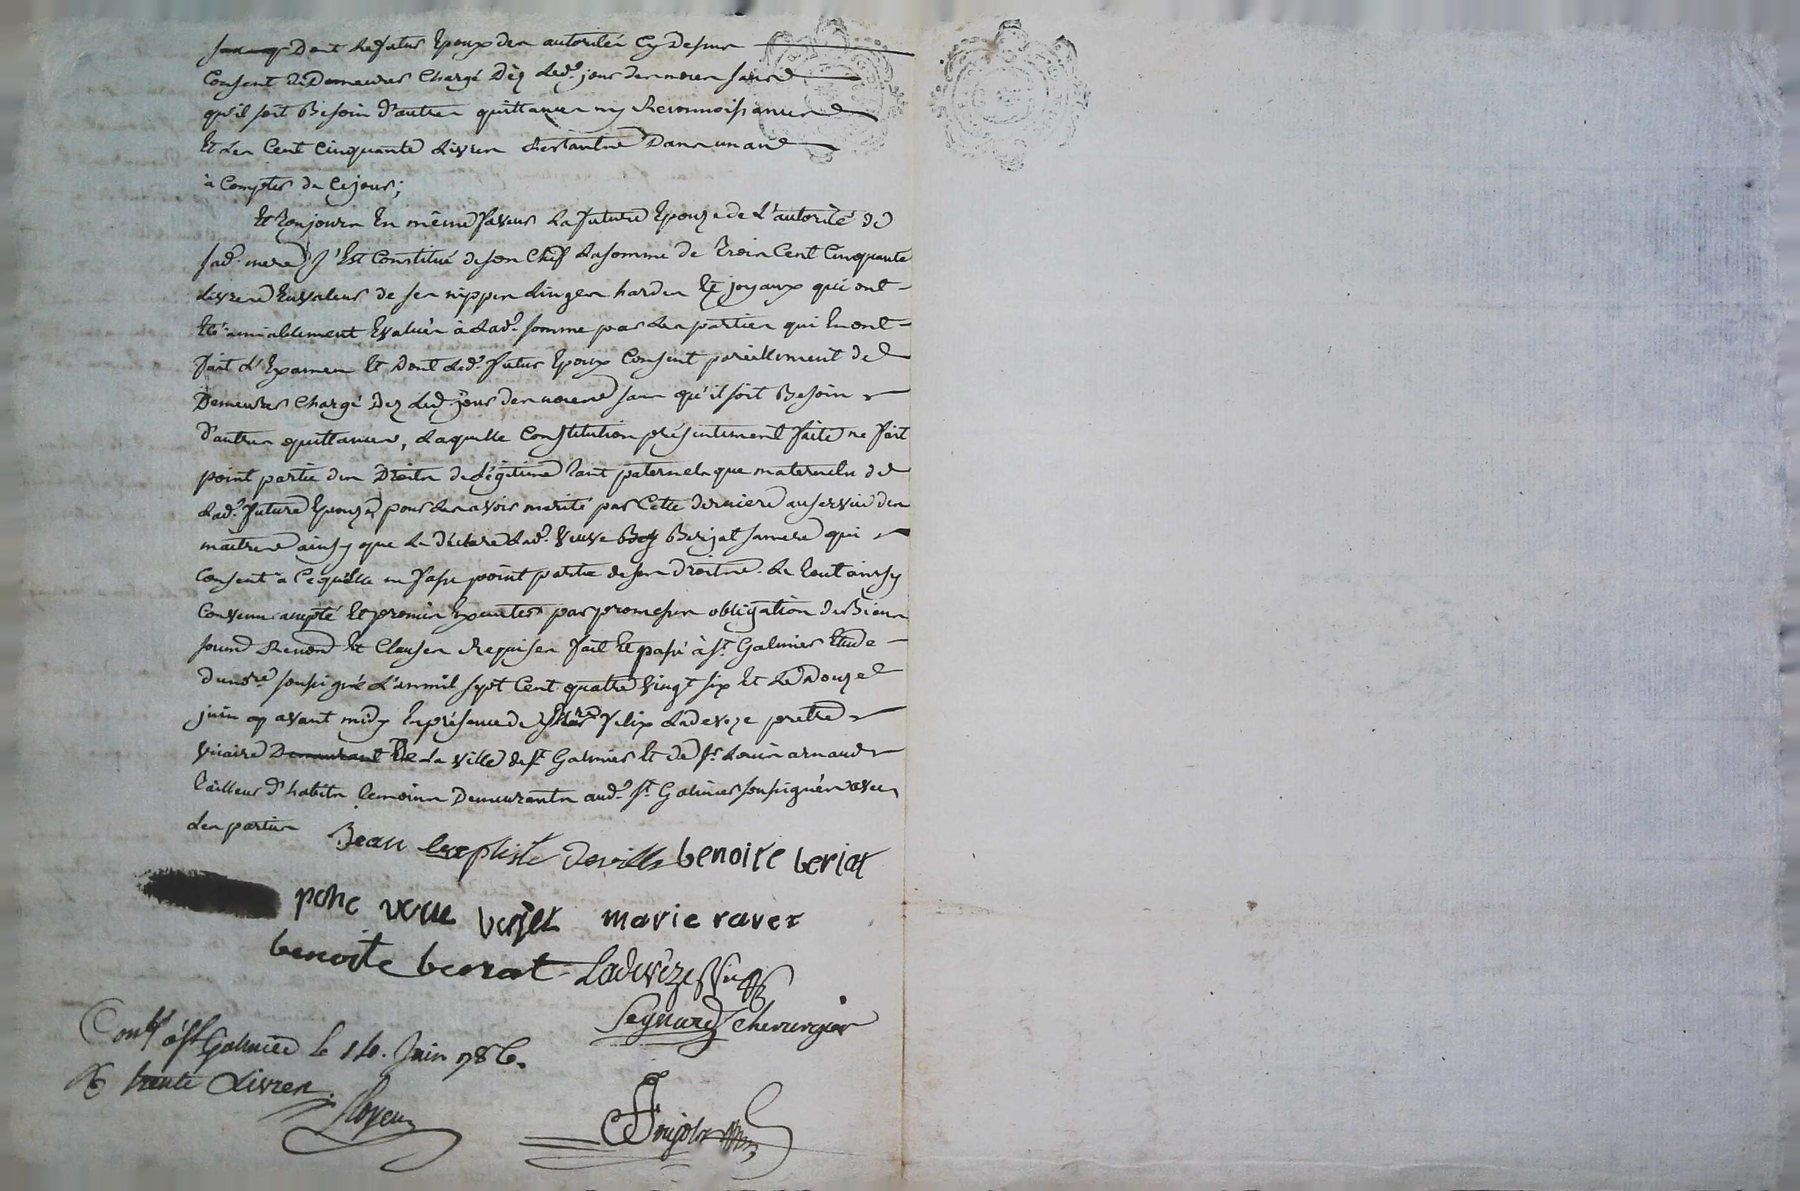 Dont le futur Epoux des autorités Cy Dessus
Consent de Demeurer Chargé Dès led. jour des noces sans
qu'il soit Besoin d'autre quittance ny Reconnoissance
Et les Cent Cinquante Livres Restantes Dans un an
à Compter de Ce jour;
Et Toujours En même faveur la future Epouze de L'autorité de
sad. mere S'Est Constitué de son Chef la somme de Trois Cent Cinquante
Livres En valeur de ses nippes Linges hardes Et joyaux qui ont
Eté amiablement Evalués à lad. somme par les parties qui En ont
fait L'Examen Et Dont led. futur Epoux Consent pareillement de
Demeurer Chargé Dez led. jour des noces sans qu'il soit Besoin
d'autre quittance, Laquelle Constitution présentement faite ne fait
point partie des Droits de Légitime tant paternels que maternels de
lad. future Epouze pour les avoir mérité par Cette derniere au service des
maitres ainsy que le déclare lad. veuve Berjat sa mere qui
Consent à Ce qu'elle ne fasse point partie de ses droits. Le tout ainsy
Convenu accepté Et promis Executer par promesses obligation de Biens
soumis Renond Et Clauses Requises fait Et passé à St Galmier Etude
du nore soussigné L'an mil sept Cent quatre vingt six Et Le Douze
juin avant midy En présence de Felix Ladeveze pretre
vicaire Demeurant De La ville de St Galmier Et de Sr Louis arnaud
tailleur d'habits temoins Demeurants aud. St Galmier soussignés avec
les parties
Jean baptiste deville benoite beriat
ponc veve marie ravet
benoite Ladevèze vic
Peynard cherurgier
Conlé à St Galmier le 14. Juin 1786.
trente Livres.